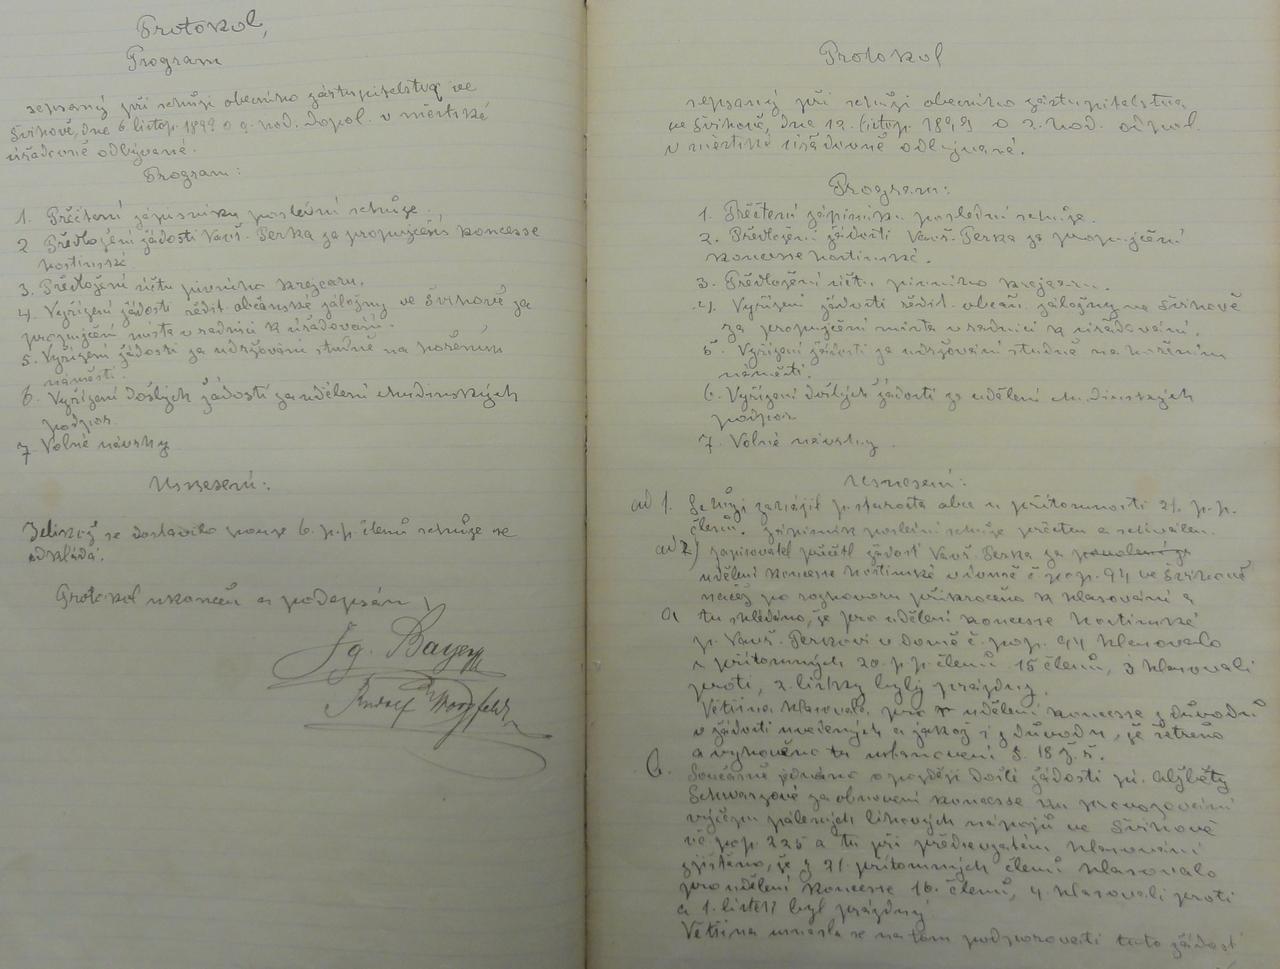 Protokol,
Program
sepsaný při schůzi obecního zástupitelstva ve
Švihově, dne 6. listop. 1899 o 9. hod. dopol. v městské
úřadovně odbývané.
Program:
1. Přečtení zápisníku poslední schůze.
2 Předložení žádosti Vavř. Terka za propůjčení koncesse
hostinské
3. Předložení účtu pivního krejcaru.
4. Vyřízení žádosti ředit. občanské záložny ve Švihově za
propůjčení místa v radnici k úřadování.
5. Vyřízení žádosti za udržování studně na hořením
náměstí.
6. Vyřízení došlých žádostí za udělení chudinských
podpor.
7 Volné návrhy
Usnesení:
Jelikož se dostavilo pouze 6. p. p. členů schůze se
odkládá.
Protokol ukončen a podepsán
Jg. Bayer
Rudolf
Protokol
sepsaný při schůzi obecního zástupitelstva
ve Švihově, dne 12. listop. 1899 o 2. hod. odpol.
v městské úřadovně odbývané.
Program:
1. Přečtení zápisníku poslední schůze.
2. Předložení žádosti Vavř. Terka za propůjčení
koncesse hostinské.
3. Předložení účtu pivního krejcaru.
4. Vyřízení žádosti ředit. občan. záložny ve Švihově
za propůjčení místa v radnici k úřadování.
5. Vyřízení žádosti za udržování studně na hořením
náměstí.
6. Vyřízení došlých žádostí za udělení chudinských
podpor
7. Volné návrhy.
Usnesení:
ad 1. Schůzi zahájil p. starosta obce u přítomnosti 21. p. p.
členů. Zápisník poslední schůze přečten a schválen.
ad 2) zapisovatel přečetl žádost Vavř. Terka za povolení za
udělení koncesse hostinské v domě č pop. 94 ve Švihově
načež po rozhovoru přikročeno k hlasování a
a tu shledáno, že pro udělení koncesse hostinské
p. Vavř. Terkovi v domě č. pop. 94 hlasovalo
z přítomných 20. p. p. členů 15 členů, 3 hlasovali
proti, 2. lístky byly prázdny.
Většina hlasovala pro udělení koncesse z důvodů
v žádosti uvedených a jakož i z důvodu, že šetřeno
a vyhověno tu ustanovení §. 18 ž. ř.
b. Současně jednáno o později došlé žádosti pí. Alžběty
Schwarzové za obnovení koncesse ku provozování
výčepu pálených lihových nápojů ve Švihově
v č pop. 225 a tu při předsevzatém hlasování
zjištěno, že z 21. přítomných členů hlasovalo
pro udělení koncesse 16. členů, 4. hlasovali proti
a 1. lístek byl prázdný
Většina usnesla se na tom podporovati tuto žádost